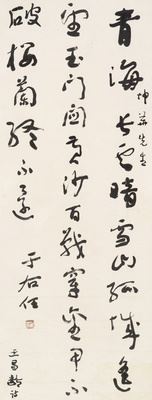 青海長雲暗雪山孤城遙
先生
望玉門關黃沙百戰穿金甲不
破樓蘭終不還
于右任
王昌齡詩